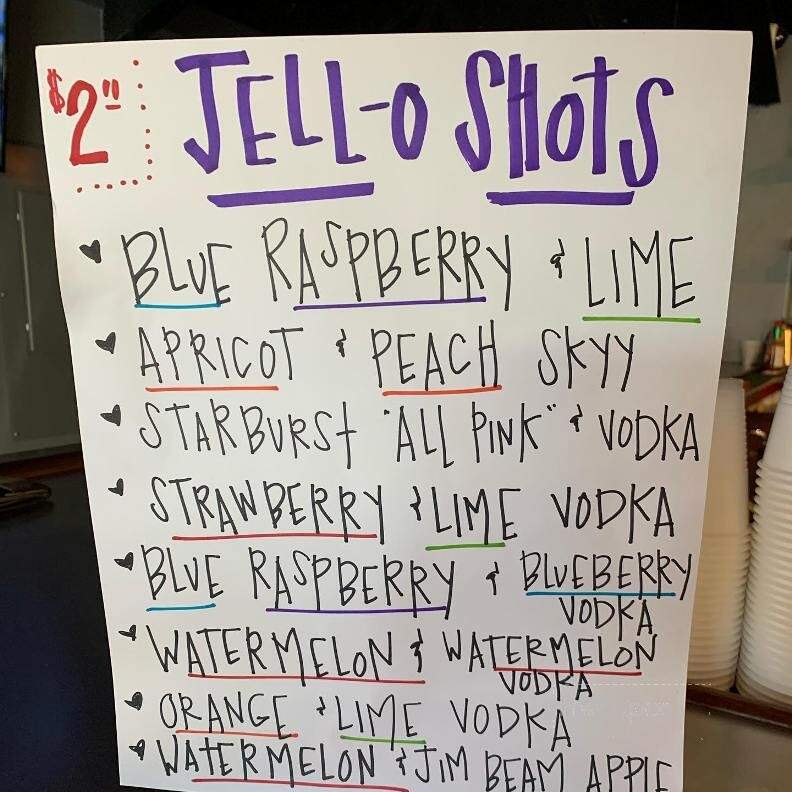 $2" JELL-O SHOTS
BLUE RASPBERRY & LIME
APRICOT & PEACH SKYY
STARBURST "ALL PINK" & VODKA
STRAWBERRY & LIME VODKA
BLUE RASPBERRY & BLUEBERRY
VODKA
WATERMELON & WATERMELON
VODKA
ORANGE & LIME VODKA
WATERMELON & JIM BEAM APPLE